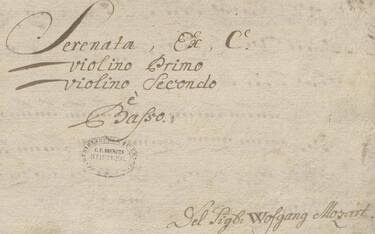 Serenata, Ex, C.
violino Primo
violino Secondo
è
Basso.
Del Sigb: Wofgang Mozart.